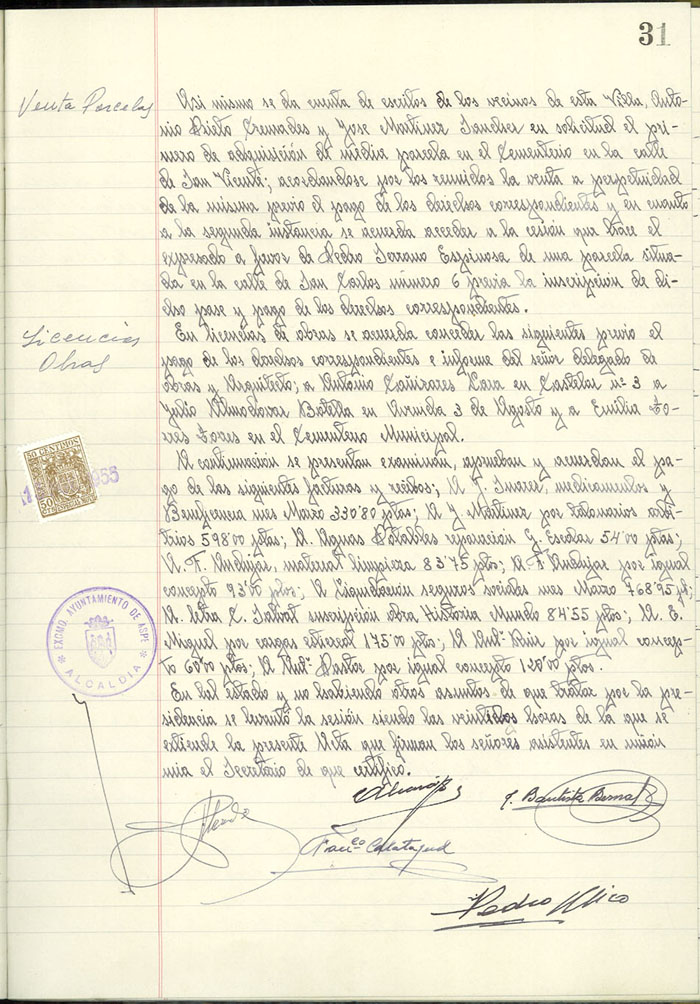 31
Venta Parcelas
Asi mismo se da cuenta de escritos de los vecinos de esta Villa, Anto-
nio Prieto Cremades y Jose Martinez Sanchez en solicitud el pri-
mero de adquisición de media parcela en el Cementerio en la calle
de San Vicente; acordandose por los reunidos la venta a perpetuidad
de la misma previo el pago de los derechos correspondientes y en cuanto
a la segunda instancia se acuerda acceder a la cesión que hace el
expresado a favor de Pedro Serrano Espinosa de una parcela situa-
da en la calle de San Carlos número 6 previa la inscripción de di-
cho pase y pago de los derechos correspondientes.
Licencias
Obras
En licencias de obras se acuerda conceder las siguientes previo el
pago de los derechos correspondientes e informe del señor delegado de
obras y Arquitecto; a Antonio Cañizares Lara en Castelar nº 3 a
Julio Almodovar Botella en Avenida 3 de Agosto y a Emilia To-
rres Torres en el Cementerio Municipal.
A continuación se presentan examinan, aprueban y acuerdan el pa-
go de las siguientes facturas y recibos; A J. Suarez, medicamentos y
Beneficencia mes Marzo 330'80 ptas; A J. Martinez por talonarios arbi-
trios 598'00 ptas; A. Aguas Potables reparación G. Escolar 54'00 ptas;
A. F. Andujar, material limpieza 83'75 ptas; A. F. Andujar por igual
concepto 93'00 ptas; A Liquidación seguros sociales mes Marzo 768'95 pts;
A. letra C. Salvat suscripción obra Historia Mundo 84'55 ptas; A. E.
Miguel por cargas estiercol 175'00 ptas; A Antº Ruiz por igual concep-
to 60'00 ptas; A Antº Pastor por igual concepto 120'00 ptas.
En tal estado y no habiendo otros asuntos de que tratar por la pre-
sidencia se levantó la sesión siendo las veintidos horas de la que se
extiende la presente Acta que firman los señores asistentes en unión
mia el Secretario de que certifico.
50 CENTIMOS
50
1955
EXCMO. AYUNTAMIENTO DE ASPE
ALCALDIA
J. Bautista Bernal
Fran.co Calatayud
Pedro